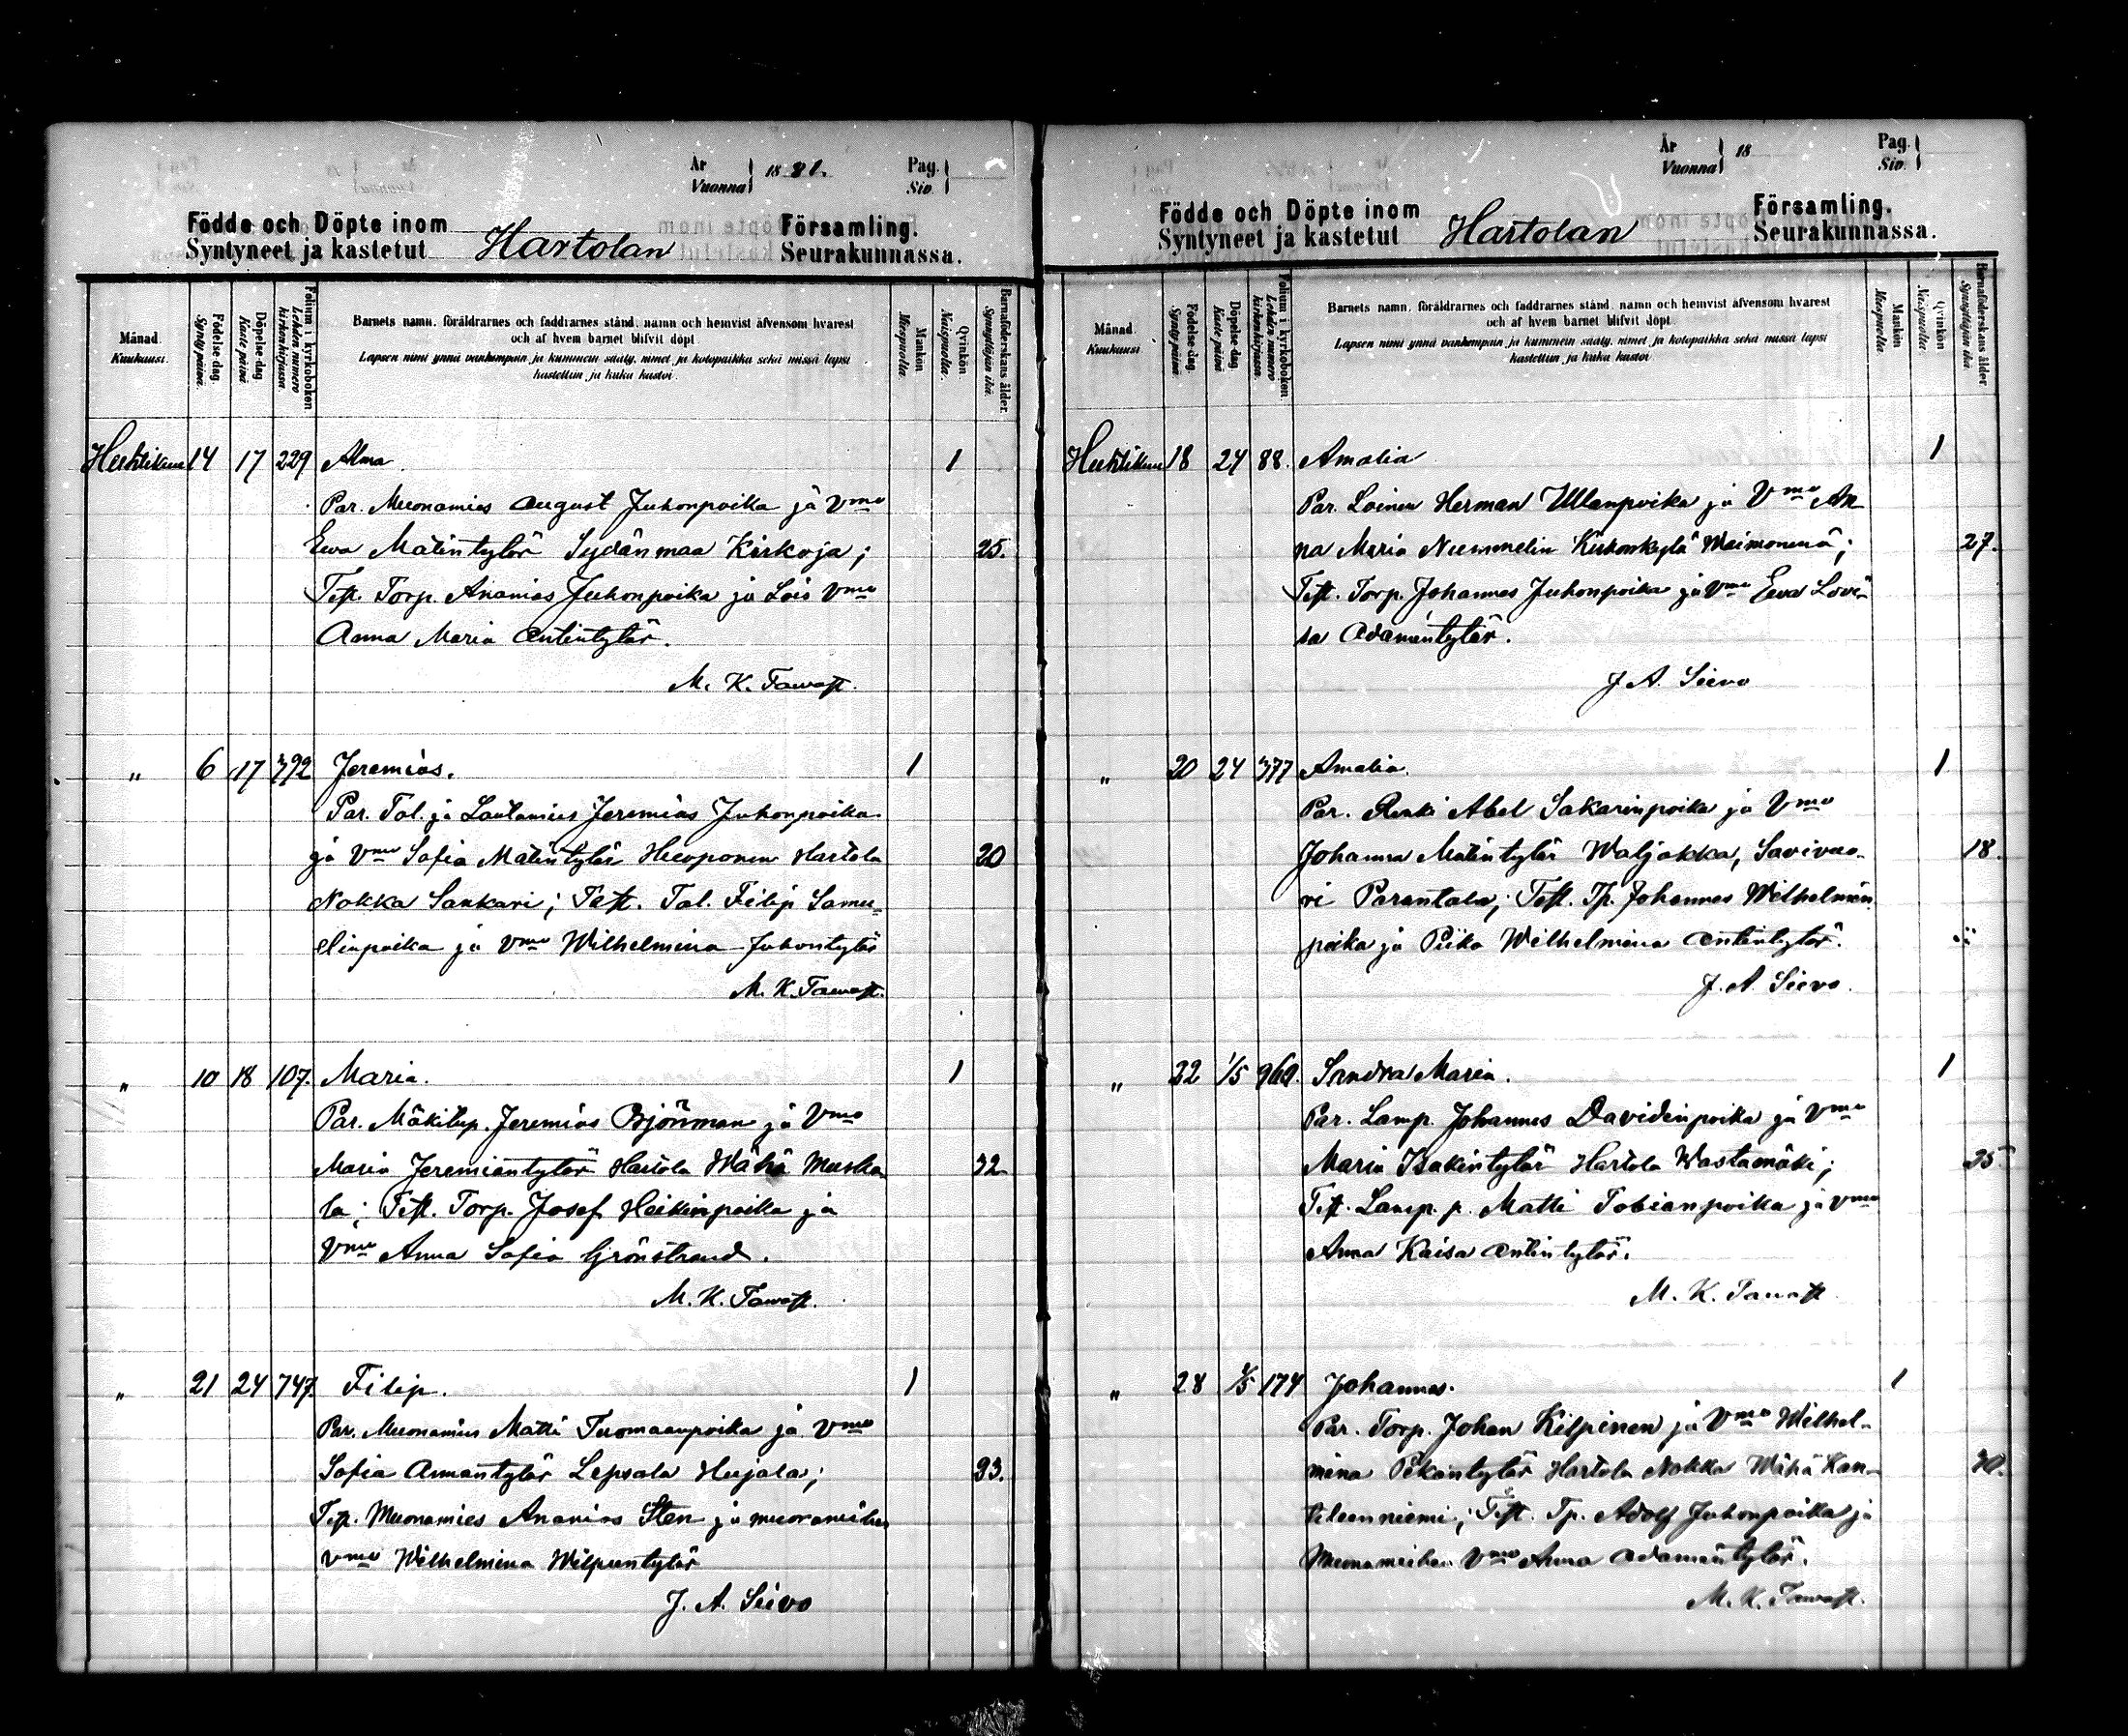 År Vuonna 1881. Pag. Siv.
Födde och Döpte inom Församling.
Syntyneet ja kastetut Hartolan Seurakunnassa.
Månad. Kuukausi.
Födelse dag. Synty päivä.
Döpelse dag Kaste päivä
Folium i kyrkoboken Lehden numero kirkonkirjassa.
Barnets namn, föräldrarnes och faddrarnes stånd, namn och hemvist äfvensom hvarest
och af hvem barnet blifvit döpt.
Lapsen nimi ynnä vanhempain ja kummein sääty, nimet ja kotopaikka sekä missä lapsi
kastettiin ja kuka kastoi.
Mankön Miespuolia.
Qvinkön Naispuolia.
Barnaföderskans ålder. Synnyttäjän ikä.
Huhtikuu 14 17 229 Alma 1
Par. Muonamies August Juhonpoika ja Vmo
Ewa Matintytär Sydänmaa Kirkoja; 25.
Test. Torp. Ananias Juhonpoika ja Lois Vmo
Anna Maria Antintytär.
M. K. Tawast.
" 6 17 392 Jeremias. 1
Par. Tal. ja Lautamies Jeremias Juhonpoika
ja Vmo Sofia Matintytär Heoponen Hartola 20
Nokka Sankari; Test. Tal. Filip Samu-
elinpoika ja Vmo Wilhelmina Juhontytär
M. K. Tawast.
" 10 18 107. Maria. 1
Par. Mäkitup. Jeremias Björnman ja Vmo
Maria Jeremiantytär Hartola Wähä Muska- 32
la; Test. Torp. Josef Heikinpoika ja
Vmo Anna Sofia Grönstrand.
M. K. Tawast.
" 21 24 747. Filip. 1
Par. Muonamies Matti Tuomaanpoika ja Vmo
Sofia Annantytär Lepsala Hujala; 33.
Test. Muonamies Ananias Sten ja muonamiehen
Vmo Wilhelmina Wilpuntytär
J. A. Siivo
År Vuonna 18 Pag. Siv.
Födde och Döpte inom Församling.
Syntyneet ja kastetut Hartolan Seurakunnassa.
Månad. Kuukausi
Födelse dag. Synty päivä.
Döpelse dag Kaste päivä
Folium i kyrkoboken. Lehden numero kirkonkirjassa.
Barnets namn, föräldrarnes och faddrarnes stånd, namn och hemvist äfvensom hvarest
och af hvem barnet blifvit döpt.
Lapsen nimi ynnä vanhempain ja kummein sääty, nimet ja kotopaikka sekä missä lapsi
kastettiin ja kuka kastoi.
Mankön Miespuolia.
Qvinkön Naispuolia.
Barnaföderskans ålder Synnyttäjän ikä.
Huhtikuu 18 24 88. Amalia 1
Par. Loinen Herman Ullanpoika ja Vmo An-
na Maria Nummelin Kirkonkylä Waimonenä; 27.
Test. Torp. Johannes Juhonpoika ja Vmo Ewa Lovi-
sa Adamintytär.
J A. Siivo
" 20 24 377 Amalia. 1
Par. Renki Abel Sakarinpoika ja Vmo
Johanna Matintytär Waljakka, Savivuo- 18.
ri Parantala; Test. Tp. Johannes Wilhelmin
poika ja Piika Wilhelmina Antintytär.
J. A. Siivo.
" 22 1/5 960. Sandra Maria. 1
Par. Lamp. Johannes Davidinpoika ja Vmo
Maria Isakintytär Hartola Wastamäki; 35
Test. Lamp. p. Matti Tobianpoika ja Vmo
Anna Kaisa Antintytär.
M. K. Tawast
" 28 1/5 174 Johannes. 1
Par. Torp. Johan Kilpinen ja Vmo Wilhel-
mina Pekantytär Hartola Nokka Wähä Kan- 30.
teleenniemi; Test. Tp. Adolf Juhonpoika ja
Muonamiehen Vmo Anna Adamintytär.
M. K. Tawast.